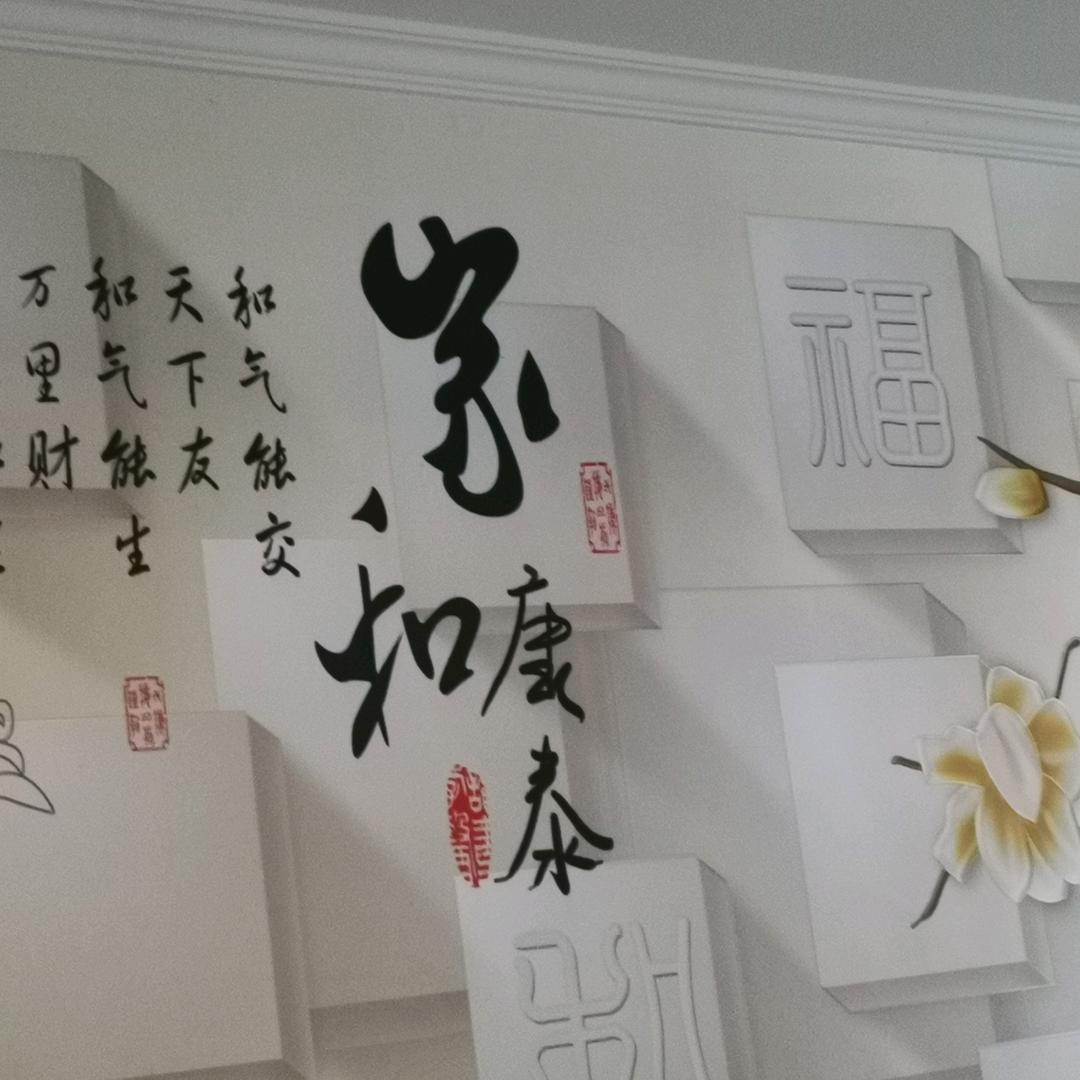 家和
康泰
和气能交
天下友
和气能生
万里财
福